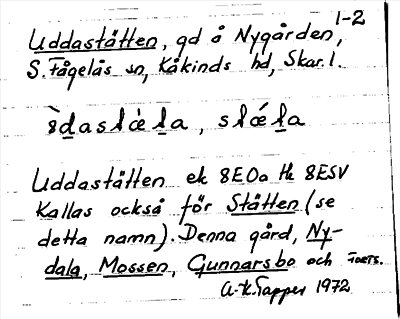 1-2
Uddastätten, gd å Nygården,
S. Fågelås sn, Kåkinds hd, Skar. l.
ùdaslὲla, slǽla
Uddastätten ek 8E0a tk 8E5V
Kallas också för Stätten (se
detta namn). Denna gård, Ny-
dala, Mossen, Gunnarsbo och FORTS.
A-K. Tapper 1972